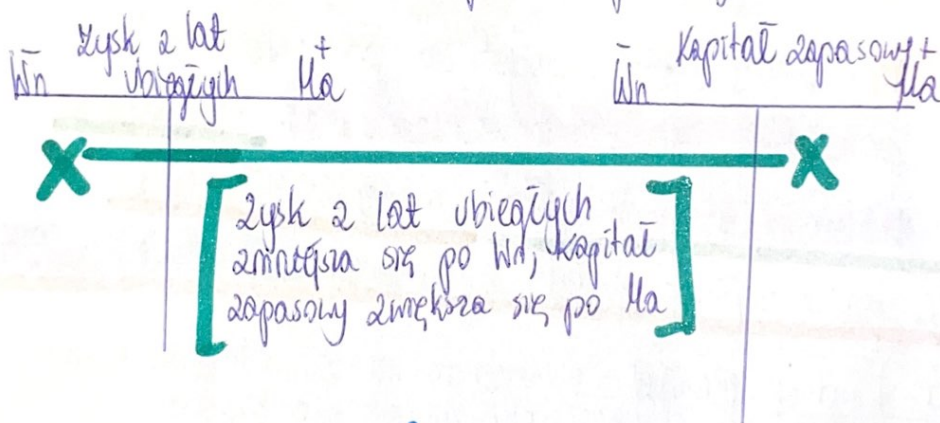 Zysk z lat
ubiegłych
- Wn
+ Ma
Kapitał zapasowy
- Wn
+ Ma
X X
[Zysk z lat ubiegłych
zmniejsza się po Wn, kapitał
zapasowy zwiększa się po Ma]